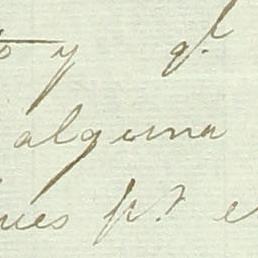 y q.l
alguna
ues p.r e